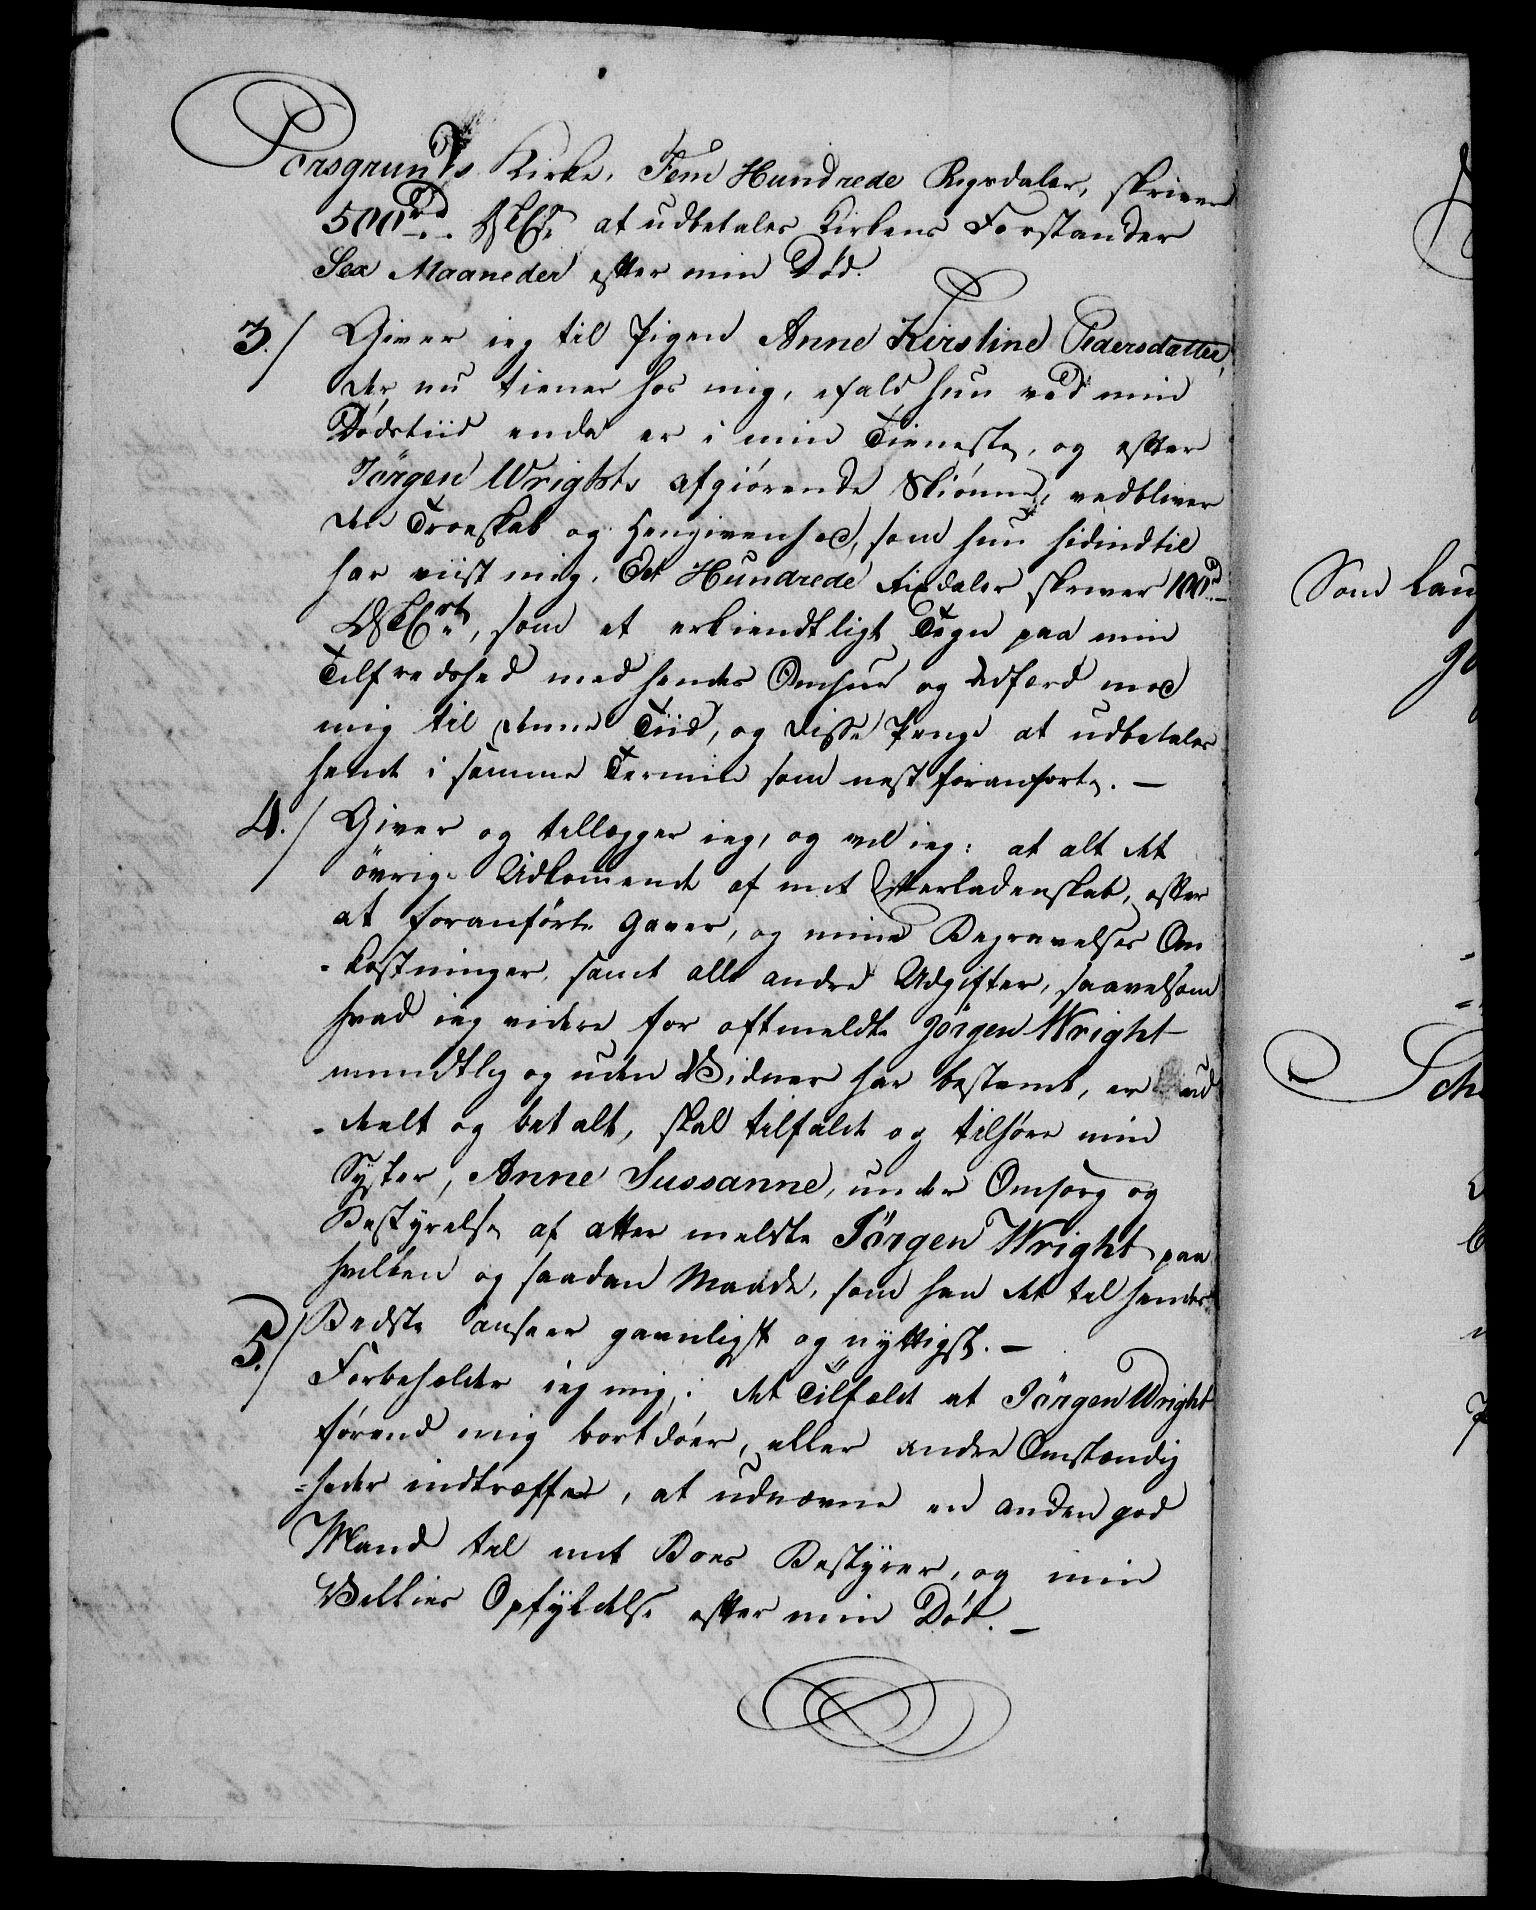 Porsgrunds Kirke, Fem Hundrede Rigsdaler, skriver
500rd DCt at udbetales Kirkens Forstander
Sex Maaneder efter min Død.
3./ Giver ieg til Pigen Anne Kirstine Pedersdatter,
der nu tiener hos mig, ifald hun ved min
Dødstiid endnu er i min Tieneste, og efter
Jørgen Wrights afgiørende Skiønne, vedbliver
den Troeskab og Hengivenhed, som hun hidindtil
har viist mig. Et Hundrede Rixdaler skriver 100d
DCrt, som et erkiendtligt Tegn paa min
Tilfredshed med hendes Omhue og Adfærd mod
mig til denne Tiid, og disse Penge at udbetales
hende i samme Termin som nest foranførte. —
4./ Giver og tillægger ieg, og vil ieg: at alt det
øvrige Udkommende af mit Efterladenskab, efter
at foranførte Gaver, og mine Begravelses Om
-kostninger, samt alle andre Udgifter, saavelsom
hvad ieg videre for oftmeldte Jørgen Wright
mundtlig og uden Vidner har bestemt, er ud
-deelt og betalt, skal tilfalde og tilhøre min
Syster, Anne Sussanne, under Omsorg og
Bestyrelse af atter meldte Jørgen Wright paa
hvilken og saadan Maade, som han det til hendes
Bedste anseer gavnligst og nyttigst. —
5./ Forbeholder ieg mig, i det Tilfælde at Jørgen Wright
førend mig bortdøer, eller andre Omstændig
=heder indtræffer, at udnævne en anden god
Mand til mit Boes Bestyrer, og min
Villies Opfyldelse efter min Død. —
Som
Sch